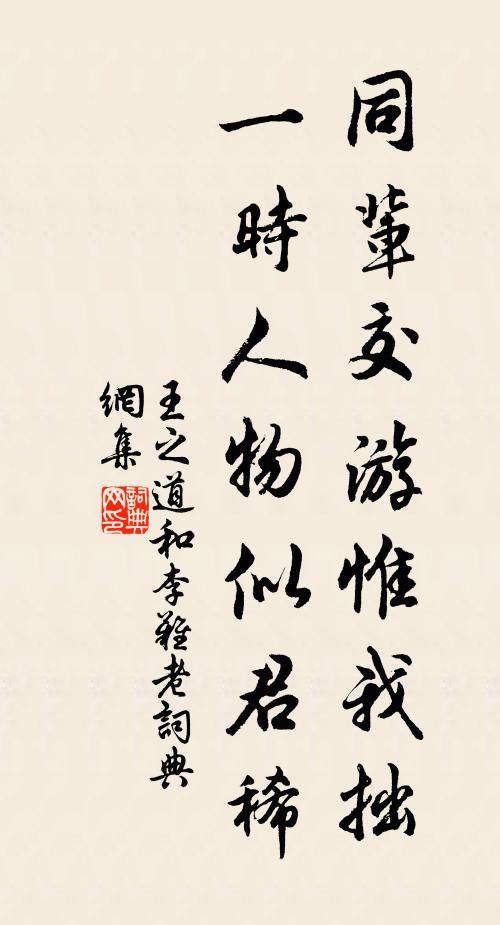 同輩交游惟我拙
一時人物似君稀
王之道和李難老詞典
網集
詞典
网印